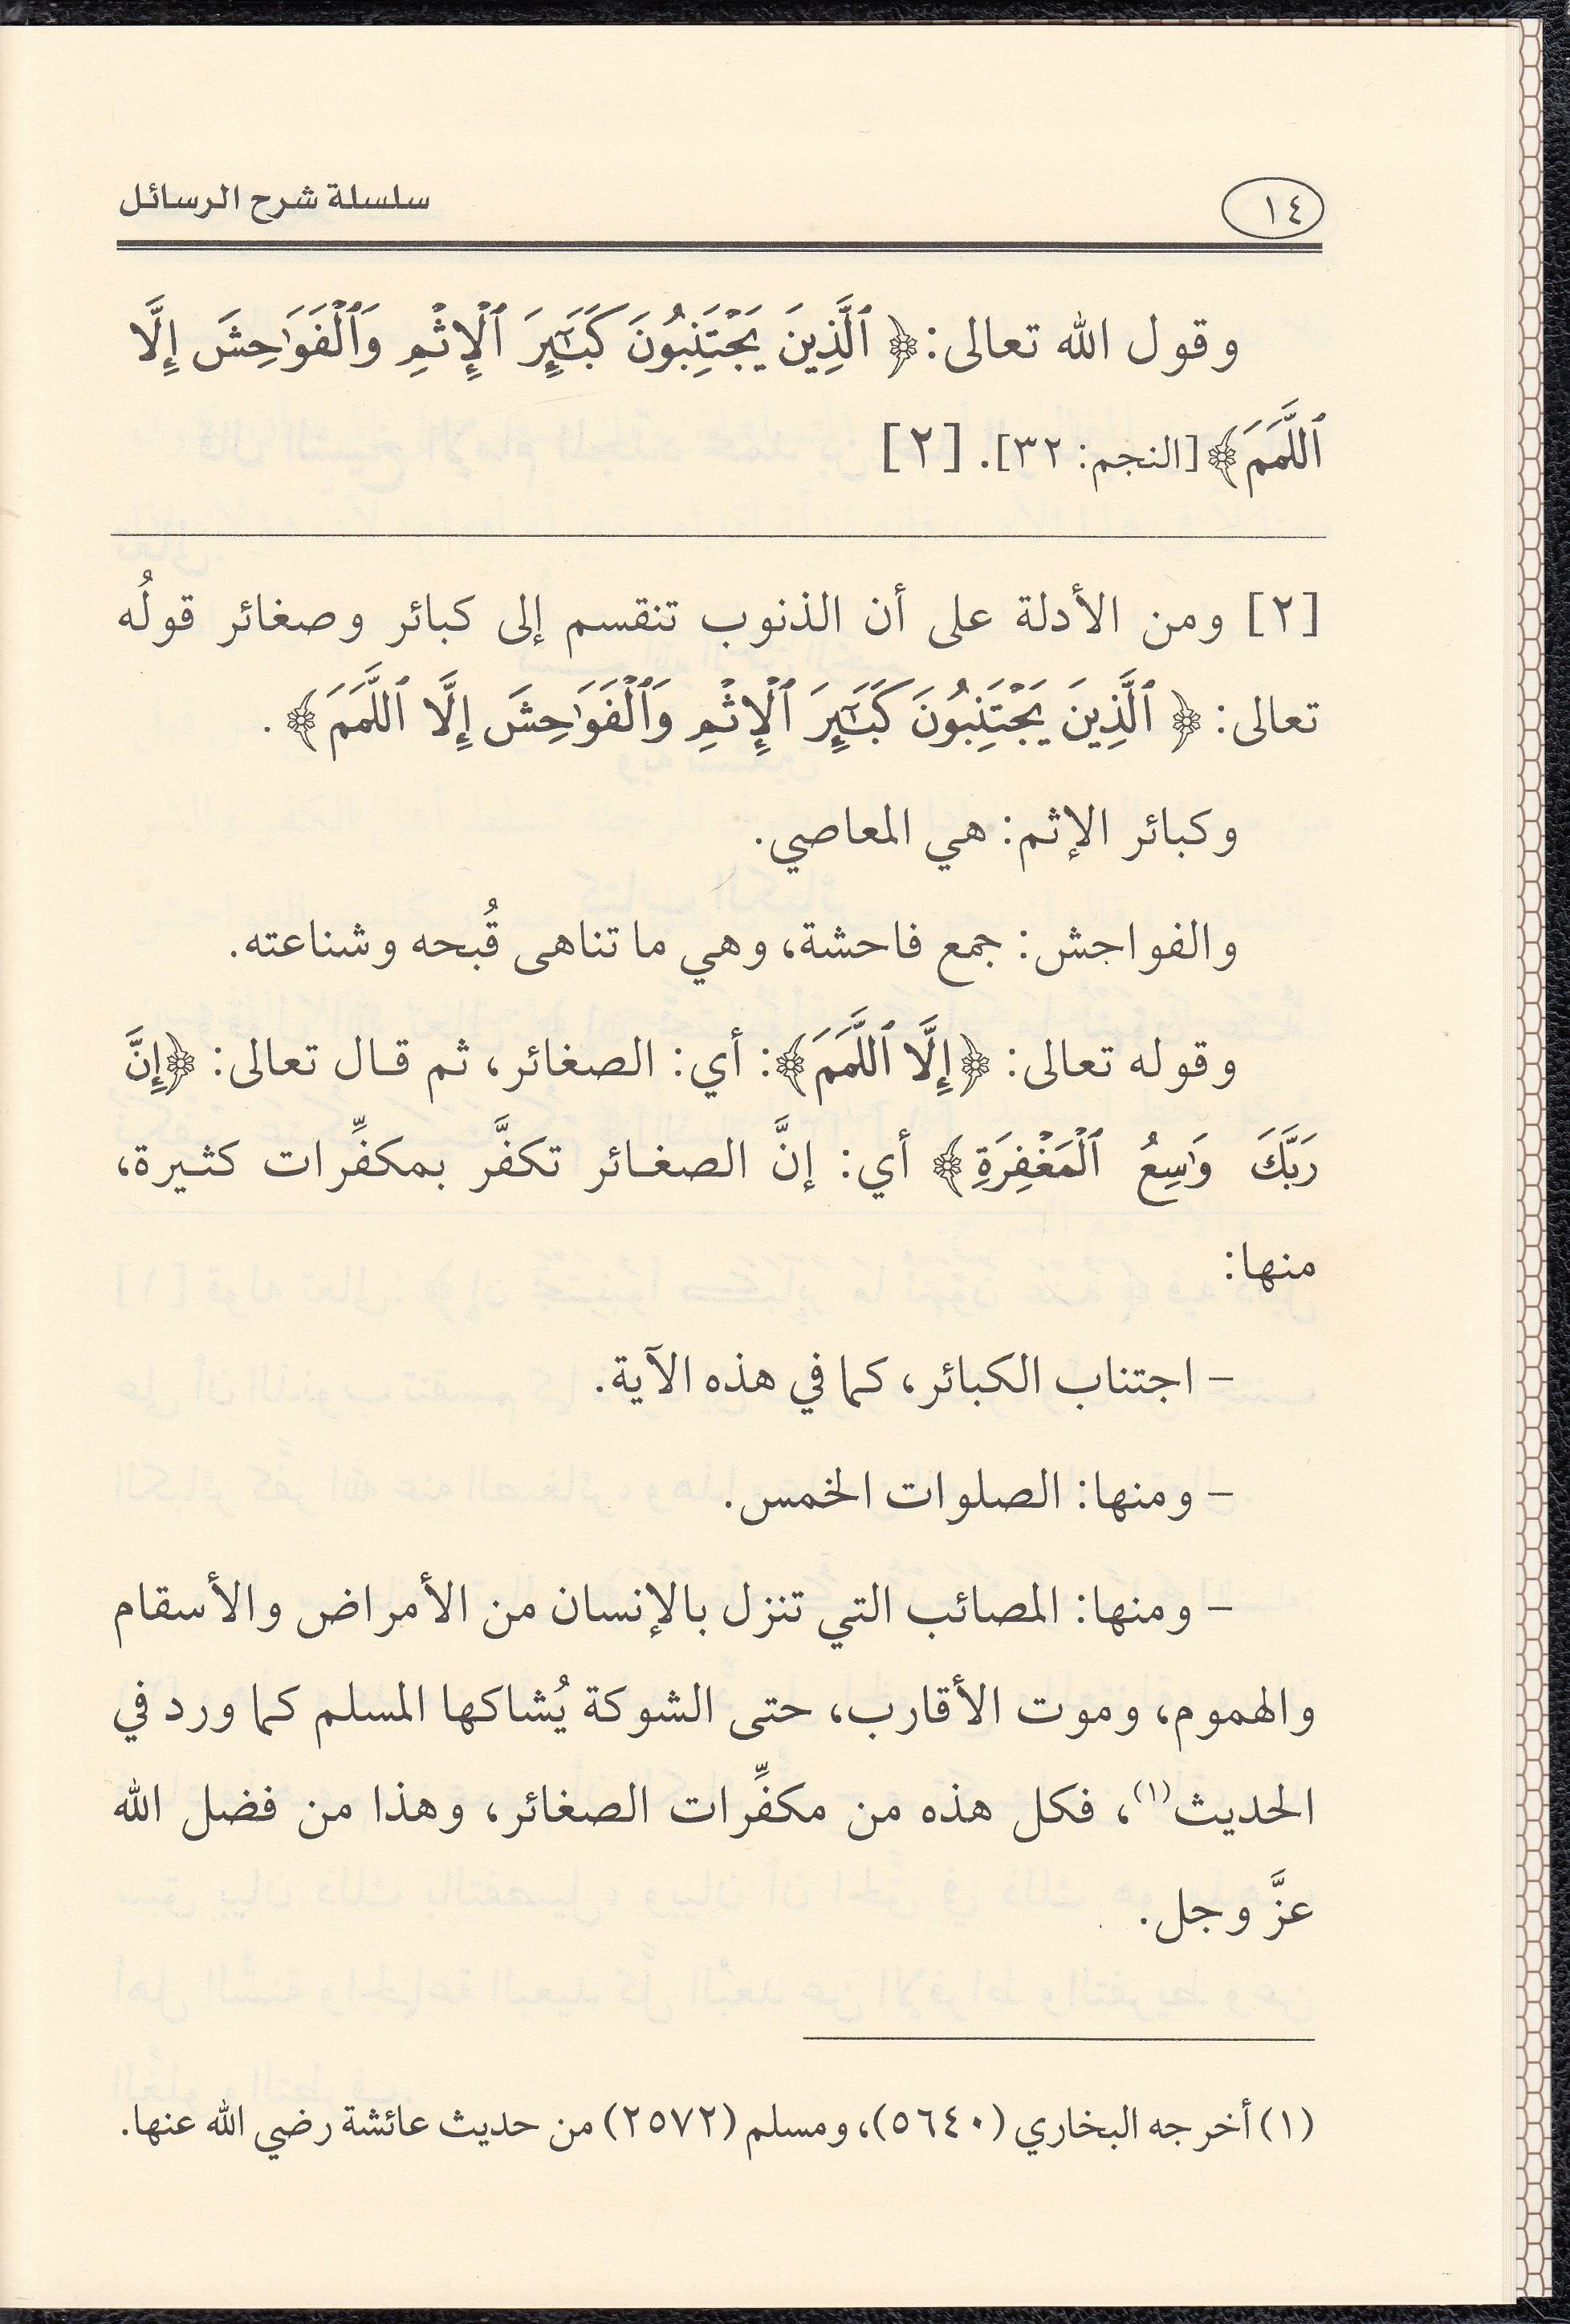 ١٤
سلسلة شرح الرسائل
وقول الله تعالى: ﴿ ٱلَّذِينَ يَجْتَنِبُونَ كَبَٰٓئِرَ ٱلْإِثْمِ وَٱلْفَوَٰحِشَ إِلَّا
ٱللَّمَمَ﴾ [النجم: ٣٢]. [٢]
[٢] ومن الأدلة على أن الذنوب تنقسم إلى كبائر وصغائر قولُه
تعالى: ﴿ ٱلَّذِينَ يَجْتَنِبُونَ كَبَٰٓئِرَ ٱلْإِثْمِ وَٱلْفَوَٰحِشَ إِلَّا ٱللَّمَمَ﴾ .
وكبائر الإثم: هي المعاصي.
والفواجش: جمع فاحشة، وهي ما تناهى قُبحه وشناعته.
وقوله تعالى: ﴿إِلَّا ٱللَّمَمَ﴾: أي: الصغائر، ثم قال تعالى: ﴿إِنَّ
رَبَّكَ وَٰسِعُ ٱلْمَغْفِرَةِ﴾ أي: إنَّ الصغائر تكفَّر بمكفِّرات كثيرة،
منها:
- اجتناب الكبائر، كما في هذه الآية.
- ومنها: الصلوات الخمس.
- ومنها: المصائب التي تنزل بالإنسان من الأمراض والأسقام
والهموم، وموت الأقارب، حتى الشوكة يُشاكها المسلم كما ورد في
الحديث(١)، فكل هذه من مكفِّرات الصغائر، وهذا من فضل الله
عزَّ وجل.
(١) أخرجه البخاري (٥٦٤٠)، ومسلم (٢٥٧٢) من حديث عائشة رضي الله عنها.